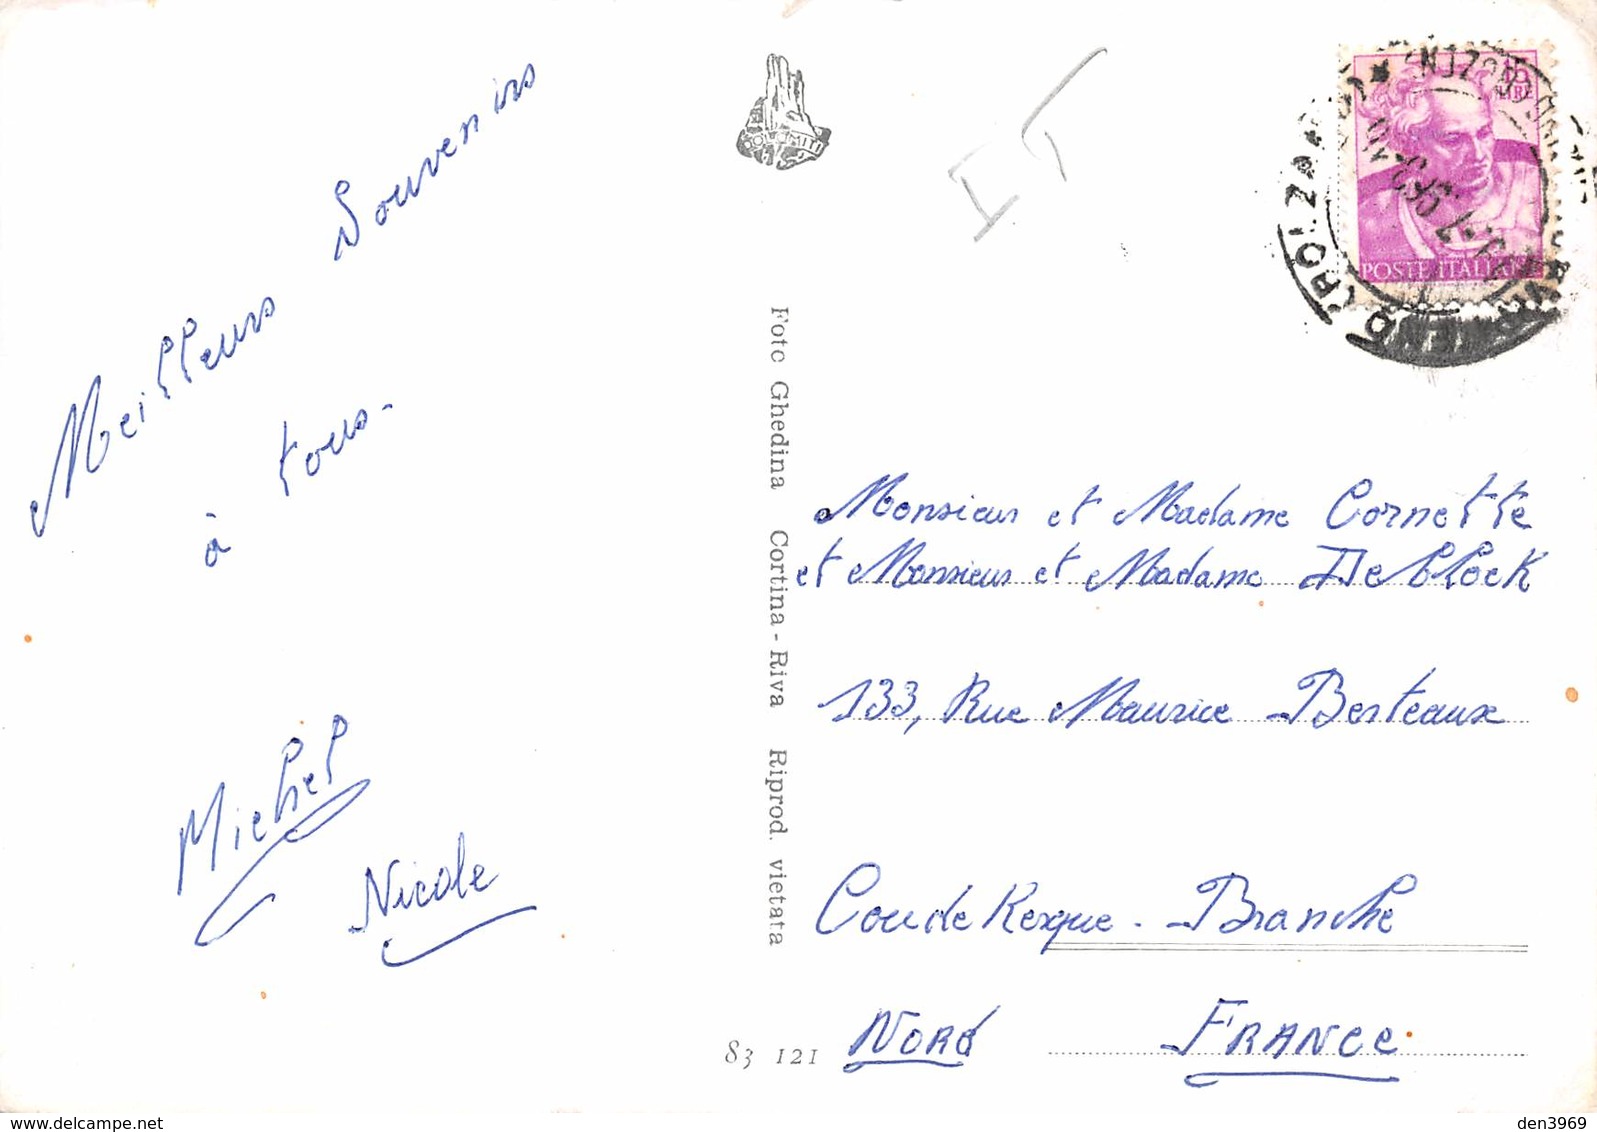 Meilleurs Souvenirs
à tous-
Michel
Nicole
DOLOMITI
IT
Foto Ghedina Cortina - Riva Riprod. vietata
83 121
15
LIRE
POSTE ITALIANE
Monsieur et Madame Cornette
et Monsieur et Madame Deblock
133, Rue Maurice Berteaux
CoudeKerque - Branche
NORd FRANCE
den3969